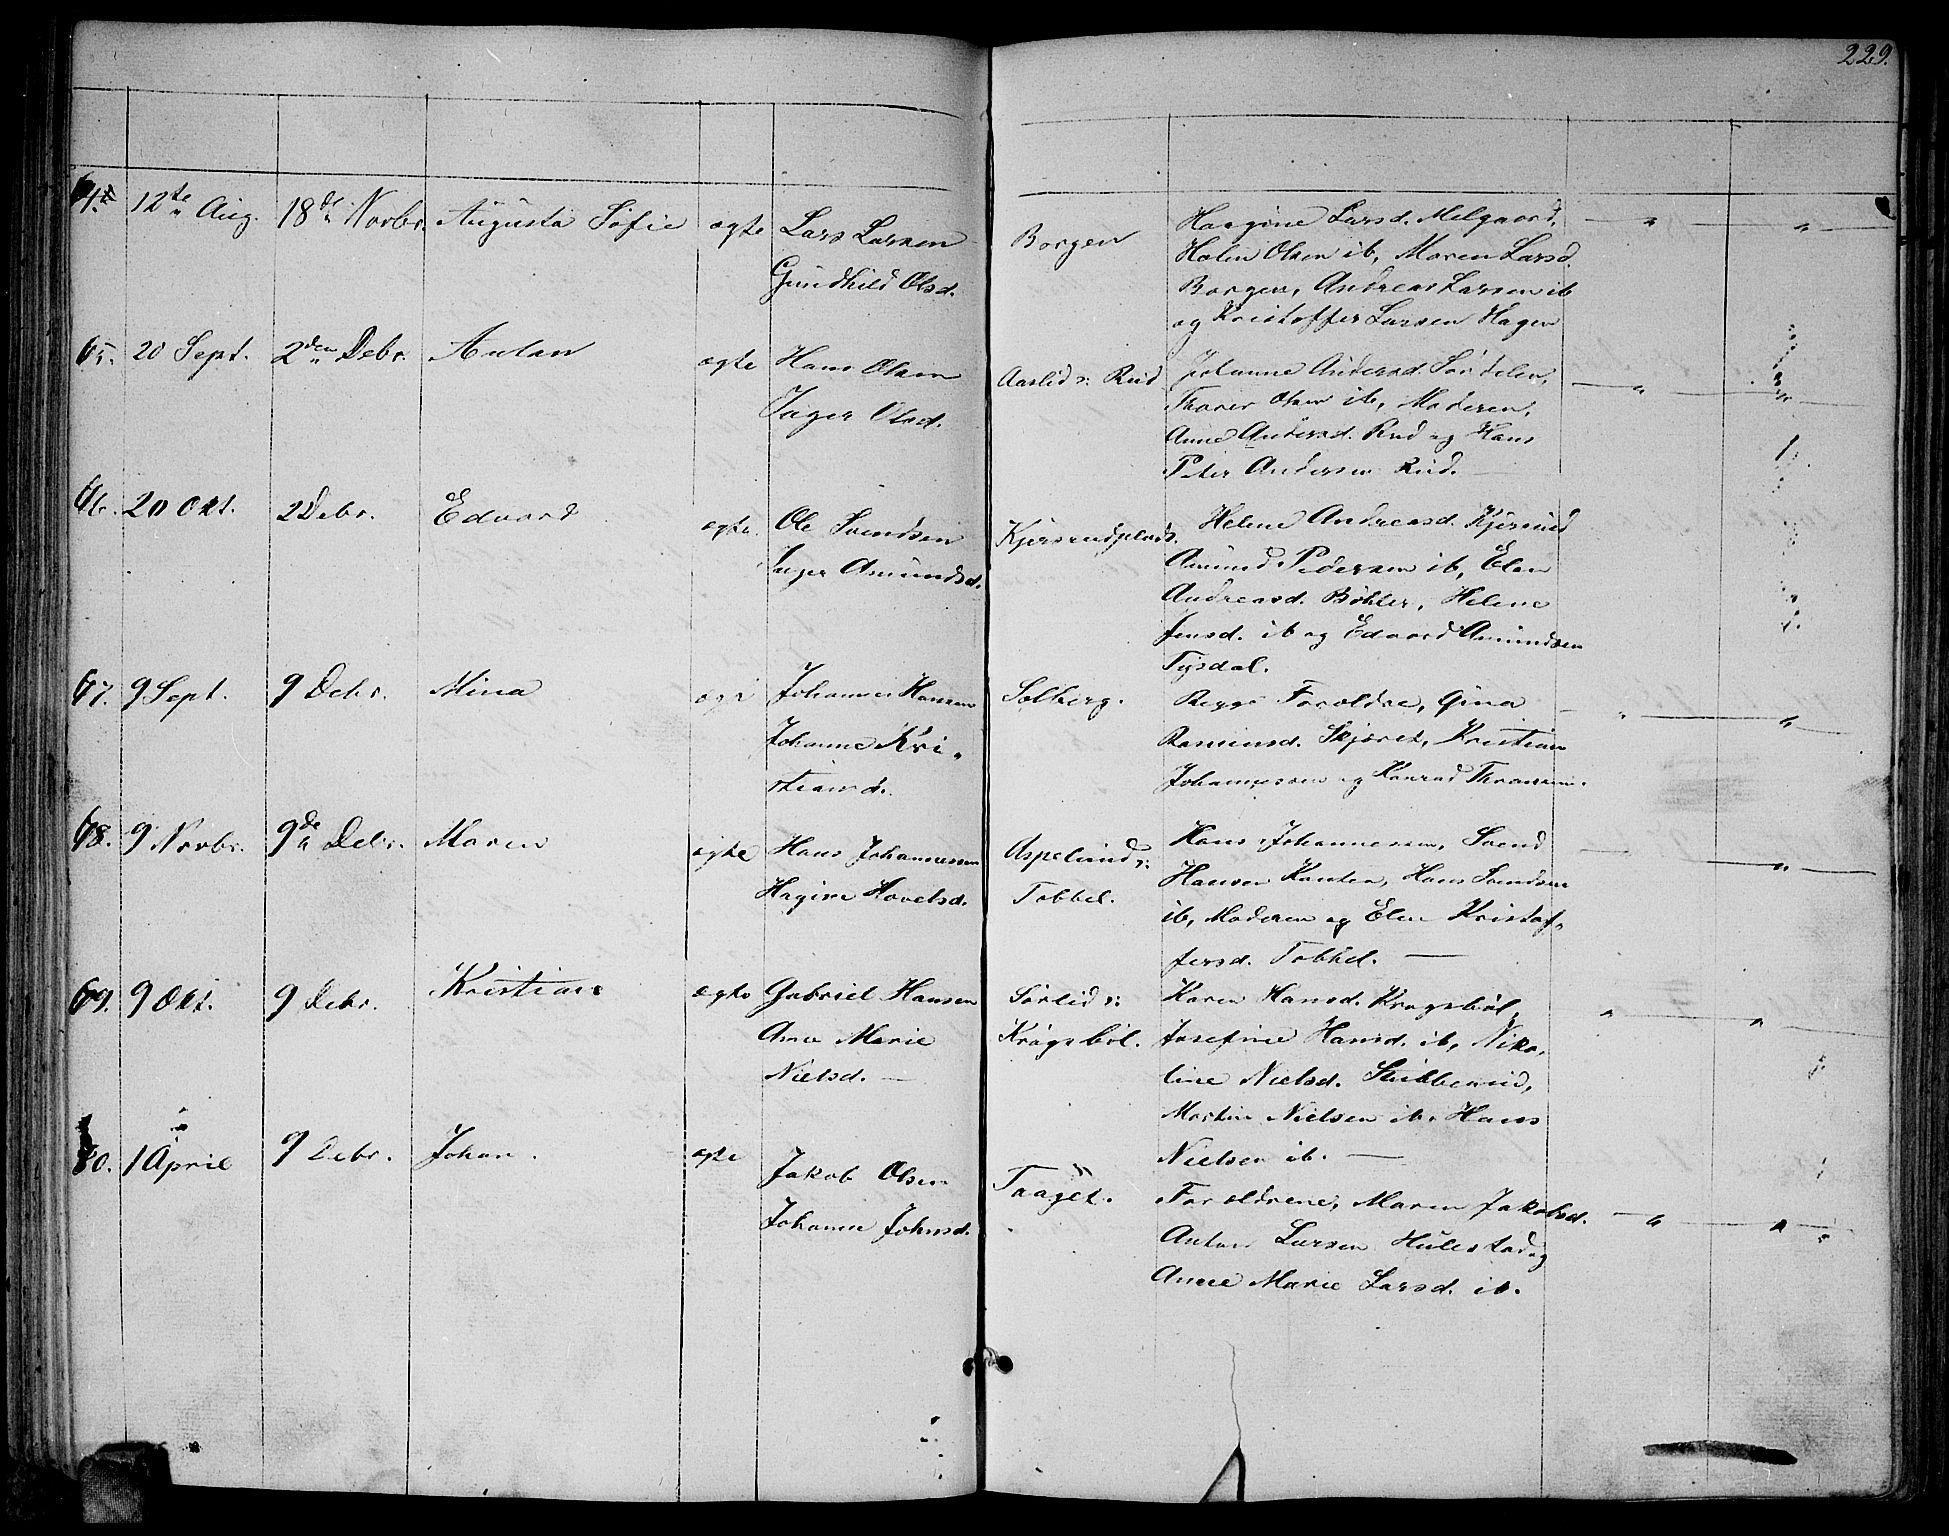 229.
64. 12te Aug. 18de Novbr. Augusta Sofie ægte Lars Larsen Borgen Haagine Larsd. Melgaard,
Gundhild Olsd. Holen Olsen ib, Maren Larsd.
Borgen, Andreas Larsen ib
og Kristoffer Larsen Hagen
65. 20 Sept. 2den Debr. Anton ægte Hans Olsen Aaslid v: Rud Johanne Andersd. Sørdelen,
Inger Olsd. Thorer Olsen ib, Moderen,
Anne Andersd. Rud og Hans
Peter Andersen Rud. —
66. 20 Okt. 2 Debr. Edvard ægte. Ole Svendsen Kjersrudplads. Helene Andreasd. Kjersrud
Inger Amundsd. Amund Pedersen ib, Elen
Andreasd. Böhler, Helene
Jensd. ib og Edvard Amundsen
Tysdal.
67. 9 Sept. 9 Debr. Mina Johannes Hansen Solberg. Begge Forældre, Gina
Johanne Kri- Rasmusd. Skjæret, Kristian
stiansd. Johannessen og Konrad Thronsen.
68. 9 Novbr. 9de Debr. Maren ægte Hans Johannessen Aspelund v: Hans Johannessen, Svend
Hagine Hovelsd. Tobbel. Hansen Kanten, Hans Svendsen
ib, Moderen og Elen Kristof-
fersd. Tobbel. —
69. 9 Okt. 9 Debr. Kristian ægte Gabriel Hansen Sørlid v: Karen Hansd. Kragsböl,
Anne Marie Krogsböl. Josefine Hansd. ib, Niko-
Nielsd. — line Nielsd. Stubberud,
Martin Nielsen ib, Hans
Nielsen ib. —
80. 1 April 9 Debr. Johan. ægte Jakob Olsen Taaget. Forældrene, Maren Jakobsd.
Johanne Johnsd. Anton Larsen Hulestad og
Anne Marie Larsd. ib.